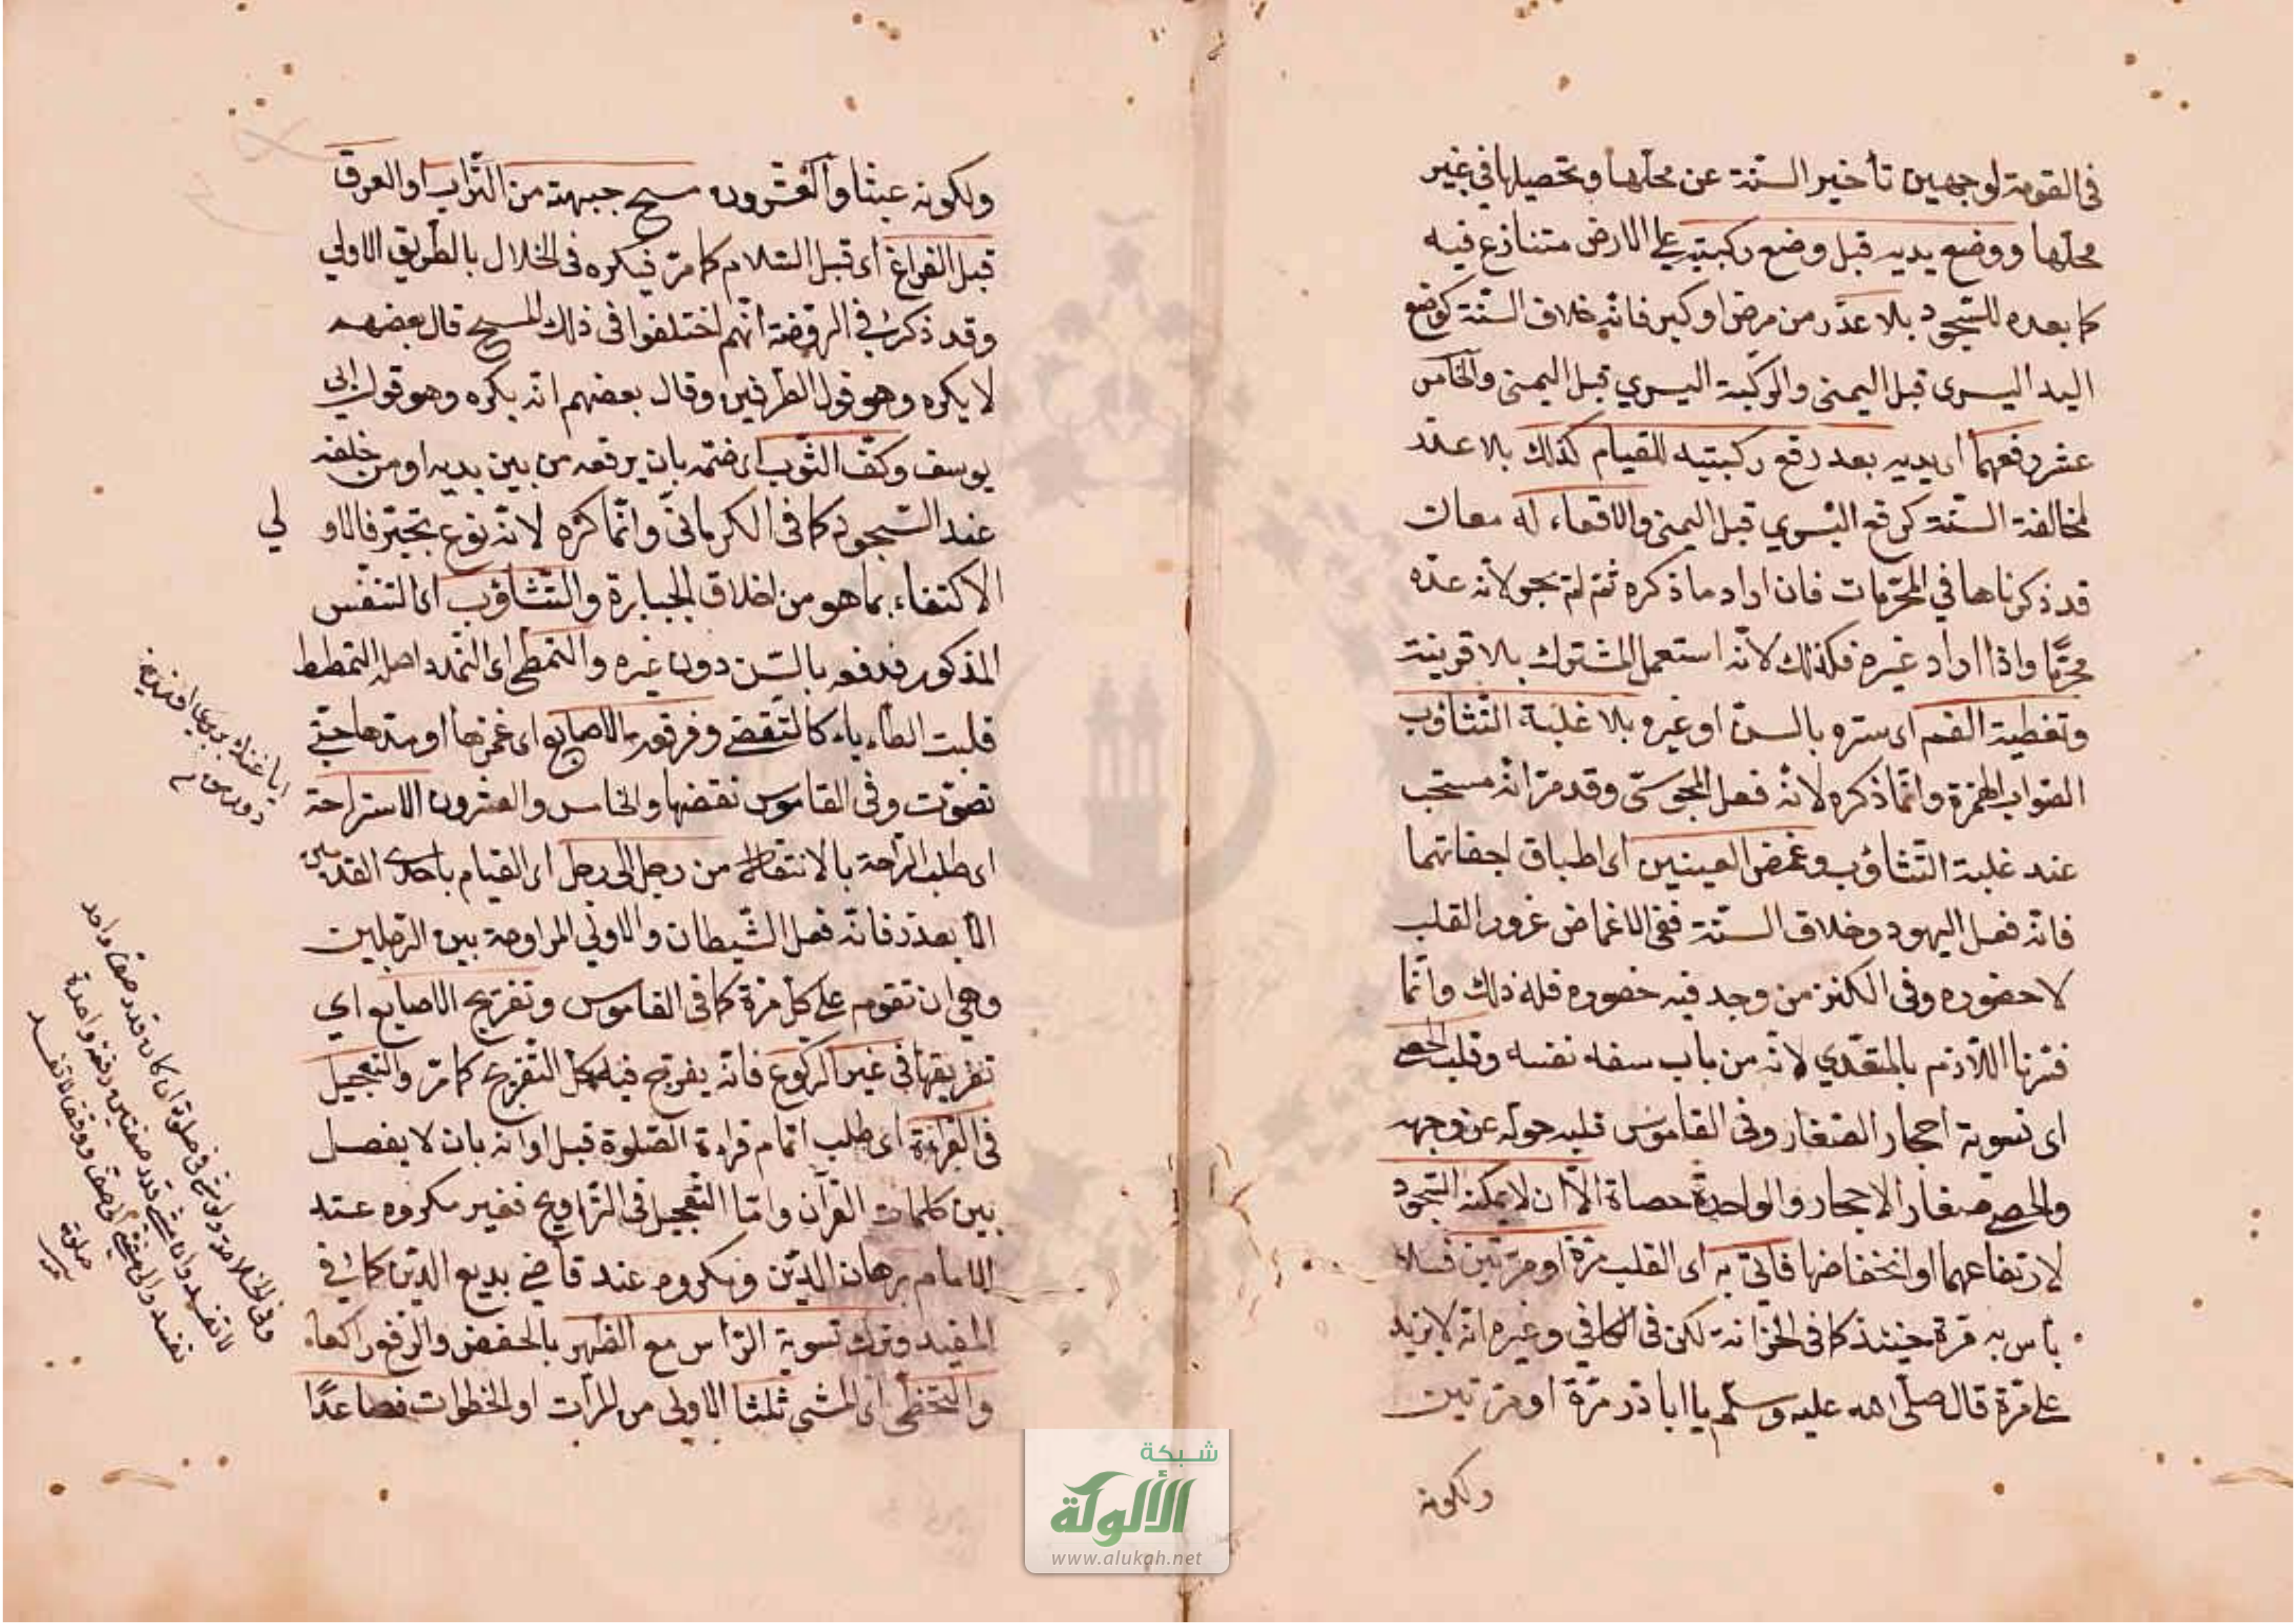 فى القومة لوجهين تأخير السنّة عن محلّها وتحصيلها فى غير
محلّها ووضع يديه قبل وضع ركبتيه على الارض متنازع فيه
كما بعده للسّجود بلا عذر من مرض او كبر فانّه خلاف السنّة كوضع
اليد اليسرى قبل اليمنى والركبة اليسري قبل اليمنى والخامس
عشر رفعهما اى يديه بعد رفع ركبتيه للقيام كذلك بلا عذر
لمخالفة السنّة كرفع اليسري قبل اليمنى والاقعاء له معان
قد ذكرناها في المحرّمات فان اراد ما ذكره ثمّ لم يجز لانه عدّه
محرّما واذا اراد غيره فكذلك لانّه استعمل المشترك بلا قرينة
وتغطية الفم اى ستره بالسنّ او غيره بلا غلبة التّثاؤب
الصّواب الهمزة وانّما ذكره لانّه فعل المجوسىّ وقد مرّ انّه مستحب
عند غلبة التّثاؤب وغمض العينين اى اطباق اجفانهما
فانّه فعل اليهود وخلاف السنّة ففى الاغماض غرور القلب
لا حضوره وفى الكنز من وجد فيه حضوره فله ذلك وانّما
فسّرنا اللّازم بالمتعّدي لانّه من باب سفه نفسه وقلب الحصى
اى تسوية احجار الصّغار وفى القاموس قلبه حوّله عن وجهه
والحصى صغار الاحجار والواحدة حصاة الّا ان لا يمكنه السّجود
لارتفاعهما او انخفاضها فاتى به اى القلب مرّة او مرّتين فلا
بأس به مرة حينئذ كما فى الخزانة لكن فى الكافي وغيره انّه لا يزيد
على مرّة قال صلّى الله عليه وسلّم يا ابا ذر مرّة او مرّتين
ولكونه
ولكونه عبثا والعشرون مسح جبهته من التّراب او العرق
قبل الفراغ اى قبل السّلام كما مرّ فيكره فى الخلال بالطّريق الاولي
وقد ذكر فى الروضة انّهم اختلفوا فى ذلك المسح قال بعضهم
لا يكره وهو قول الطرفين وقال بعضهم انّه يكره وهو قول ابى
يوسف وكفّ الثّوب اى ضمّه بان يرفعه من بين يديه او من خلفه
عند السّجود كما فى الكرمانىّ وانّما كره لانّه نوع تجبّر فالاو
لي
الاكتفاء بما هو من اخلاق الجبابرة والتّثاؤب اى التنفّس
المذكور فدفعه بالسّن دون غيره والتّمطى اى التّمدد اصله التمطط
قلبت الطّاء ياء كالتّقضى وفرقعة الاصابع اى غمزها او مدّها حتّى
تصوّت وفى القاموس نقضها والخامس والعشرون الاستراحة
اى طلب الرّاحة بالانتقال من رجل الى رجل اى القيام باحدى القدمين
الّا بعذر فانّه فعل الشّيطان والاولى المراوحة بين الرّجلين
وهى ان تقوم على كلّ مرّة كما فى القاموس وتفريج الاصابع اي
تفريقها فى غير الركوع فانّه يفرّج فيه كلّ التّفريج كما مرّ والتّعجيل
فى القراءة اى طلب اتمام قراءة الصّلوة قبل اوانه بان لا يفصل
بين كلمات القرآن وامّا التّعجيل فى التّراويح فغير مكروه عند
الامام برهان الدّين ومكروه عند قاضى بديع الدّين كما فى
المفيد وترك تسوية الرّأس مع الظّهر بالخفض والرّفع راكعا
والتّخطّى اى المشى ثلثا الاولى من المرّات او الخطوات فصاعدًا
وفى الخلاصة ولو مشى فى صلوة ان كان قدر صف واحد
لا تفسد وان مشى قدر صفّين دفعة واحدة
تفسد وان مشى الى صف ووقف لا تفسد
صلوة
شبكة
الألوكة
www.alukah.net